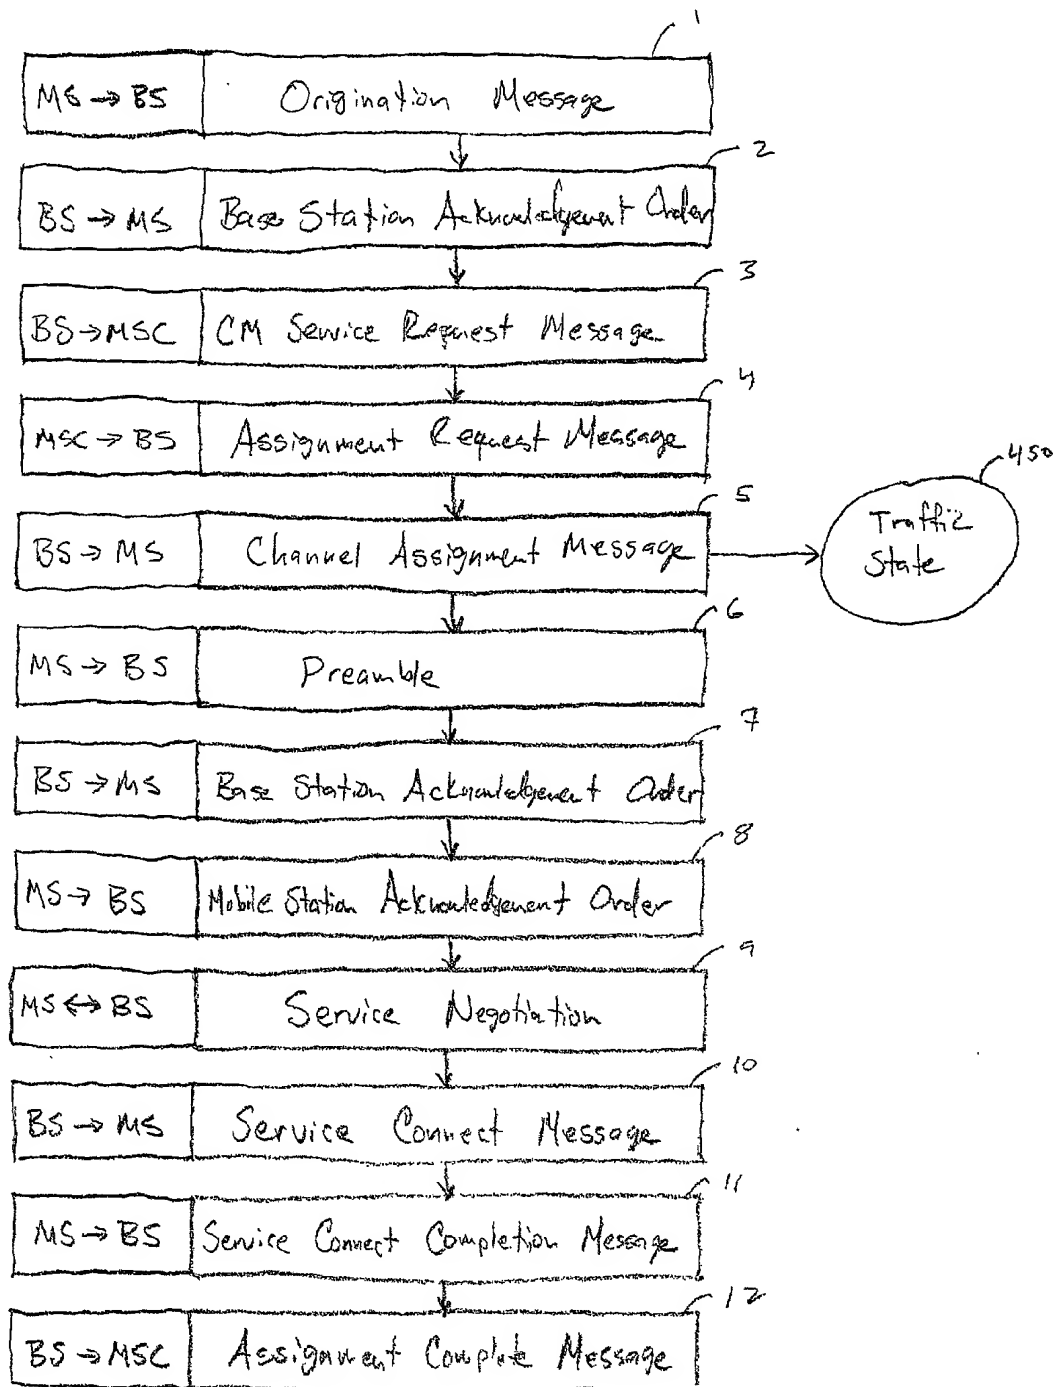 1
MS → BS Origination Message
2
BS → MS Base Station Acknowledgement Order
3
BS → MSC CM Service Request Message
4
MSC → BS Assignment Request Message
450
Traffic
State
5
BS → MS Channel Assignment Message
6
MS → BS Preamble
7
BS → MS Base Station Acknowledgement Order
8
MS → BS Mobile Station Acknowledgement Order
9
MS ↔ BS Service Negotiation
10
BS → MS Service Connect Message
11
MS → BS Service Connect Completion Message
12
BS → MSC Assignment Complete Message